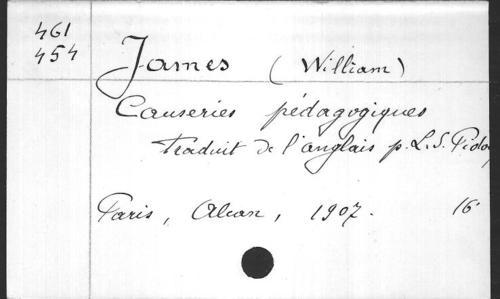 461
454
James (William)
Causeries pédagogiques
Traduit de l'anglais p. L. S.
Paris, Alcan, 1907. 16°